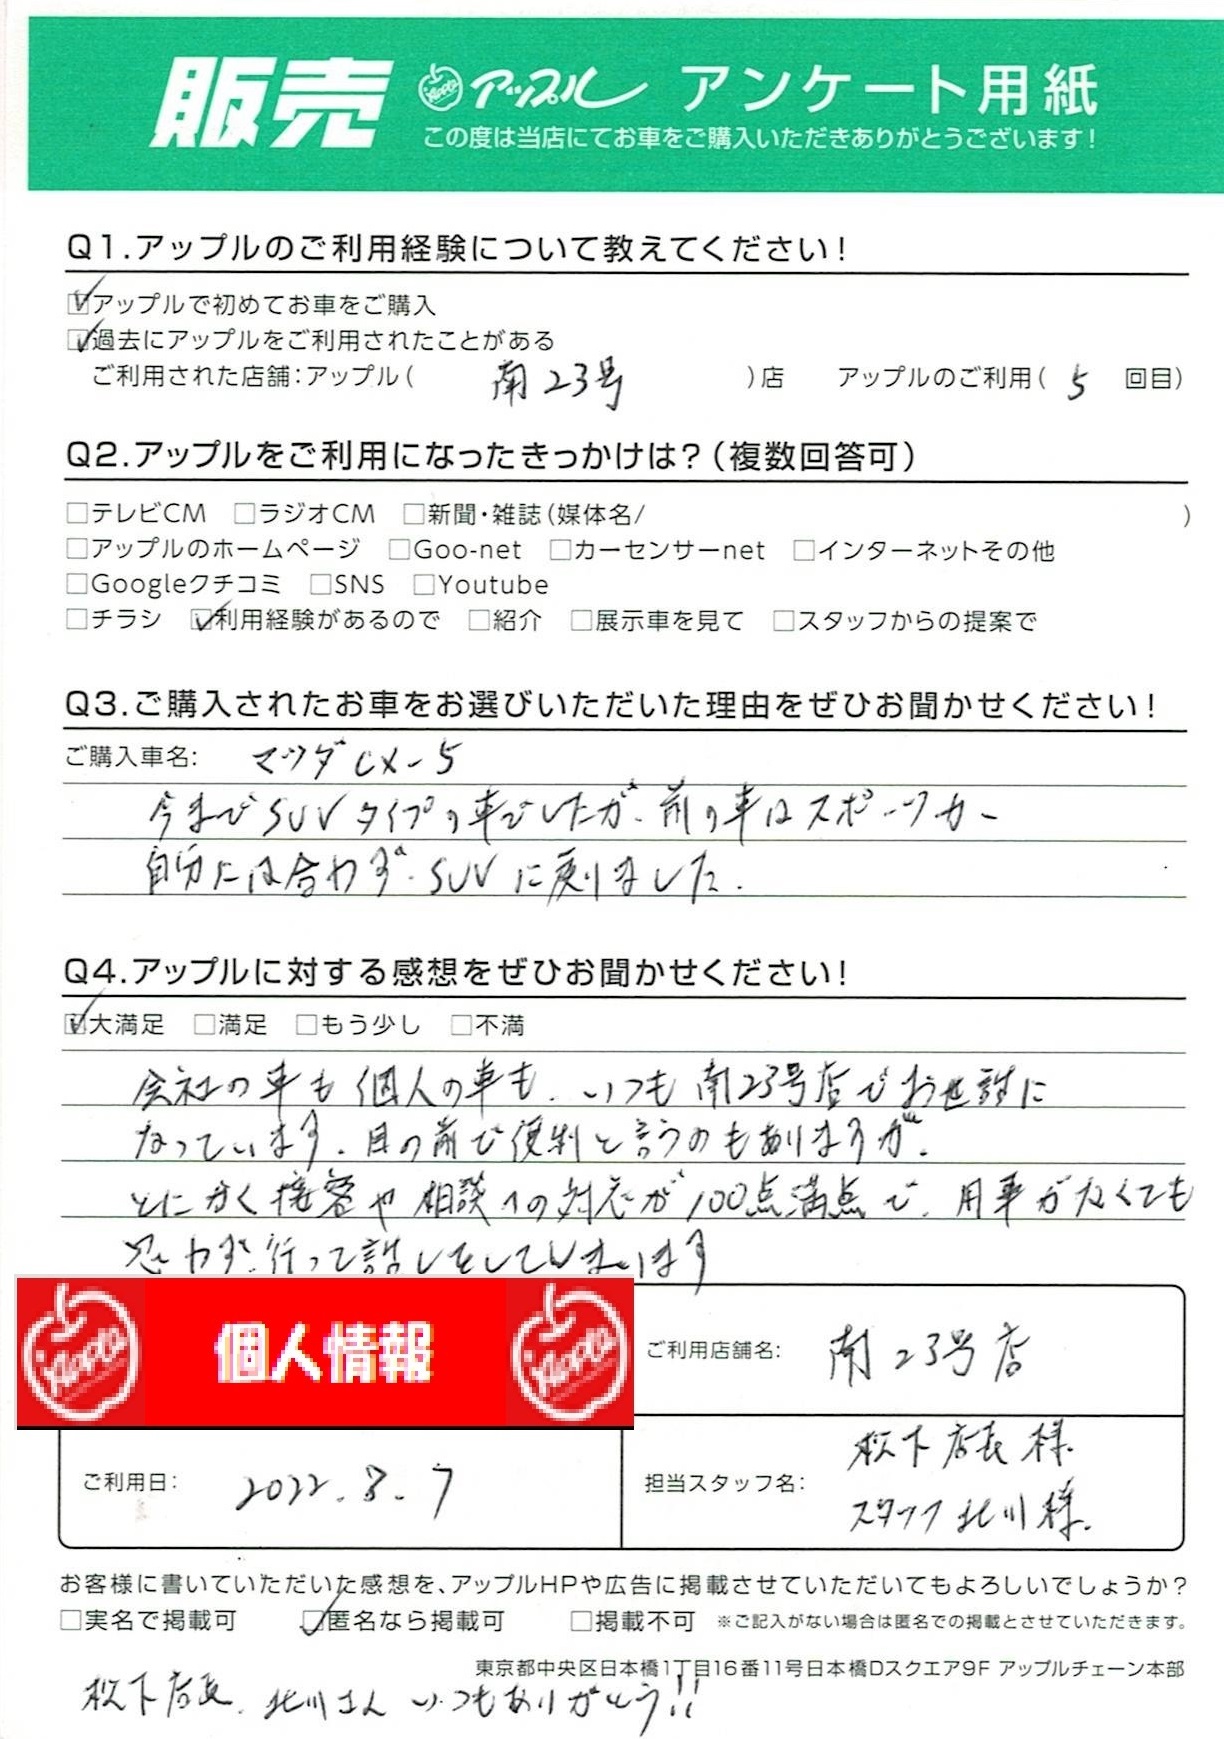 販売 Apple アップル アンケート用紙
この度は当店にてお車をご購入いただきありがとうございます!
Q1.アップルのご利用経験について教えてください!
☑アップルで初めてお車をご購入
☑過去にアップルをご利用されたことがある
ご利用された店舗:アップル( 南23号 )店 アップルのご利用( 5 回目)
Q2.アップルをご利用になったきっかけは?(複数回答可)
□テレビCM □ラジオCM □新聞・雑誌(媒体名/ )
□アップルのホームページ □Goo-net □カーセンサーnet □インターネットその他
□Googleクチコミ □SNS □Youtube
□チラシ ☑利用経験があるので □紹介 □展示車を見て □スタッフからの提案で
Q3.ご購入されたお車をお選びいただいた理由をぜひお聞かせください!
ご購入車名: マツダCX-5
今までSUVタイプの車でしたが、前の車はスポーツカー
自分には合わず、SUVに戻りました.
Q4.アップルに対する感想をぜひお聞かせください!
☑大満足 □満足 □もう少し □不満
会社の車も個人の車も、いつも南23号店でお世話に
なっています、目の前で便利と言うのもありますが、
とにかく接客や相談への対応が100点満点で、用事がなくても
思わず行って話しをしてしまいます
Apple 個人情報 Apple
ご利用店舗名: 南23号店
ご利用日: 2022.8.7
担当スタッフ名: 松下店長様
スタッフ北川様.
お客様に書いていただいた感想を、アップルHPや広告に掲載させていただいてもよろしいでしょうか?
□実名で掲載可 ☑匿名なら掲載可 □掲載不可 ※ご記入がない場合は匿名での掲載とさせていただきます。
東京都中央区日本橋1丁目16番11号日本橋Dスクエア9F アップルチェーン本部
松下店長、北川さんいつもありがとう!!